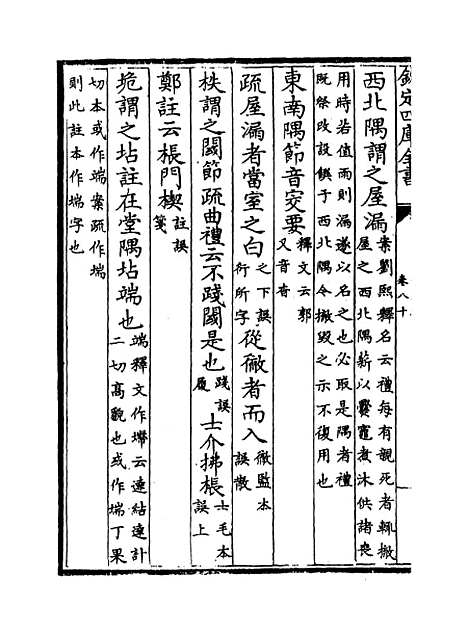 欽定四庫全書 卷八十
西北隅謂之屋漏 案劉熙釋名云禮每有親死者輒撤屋之西北隅薪以爨竈煮沐供諸喪
用時若值雨則漏遂以名之也必取是隅者禮既祭改設饌于西北隅令撤毀之示不復用也
東南隅節音穾要 釋文云郭又音杳
疏屋漏者當室之白 之下誤衍所字 從徹者而入 徹監本誤散
柣謂之閾節疏曲禮云不踐閾是也 踐誤履 士介拂棖 士毛本誤上
鄭註云棖門楔 註誤箋
垝謂之坫註在堂隅坫端也 端釋文作墆云達結達計二切高貌也或作端丁果
切本或作端案疏作端則此註本作端字也